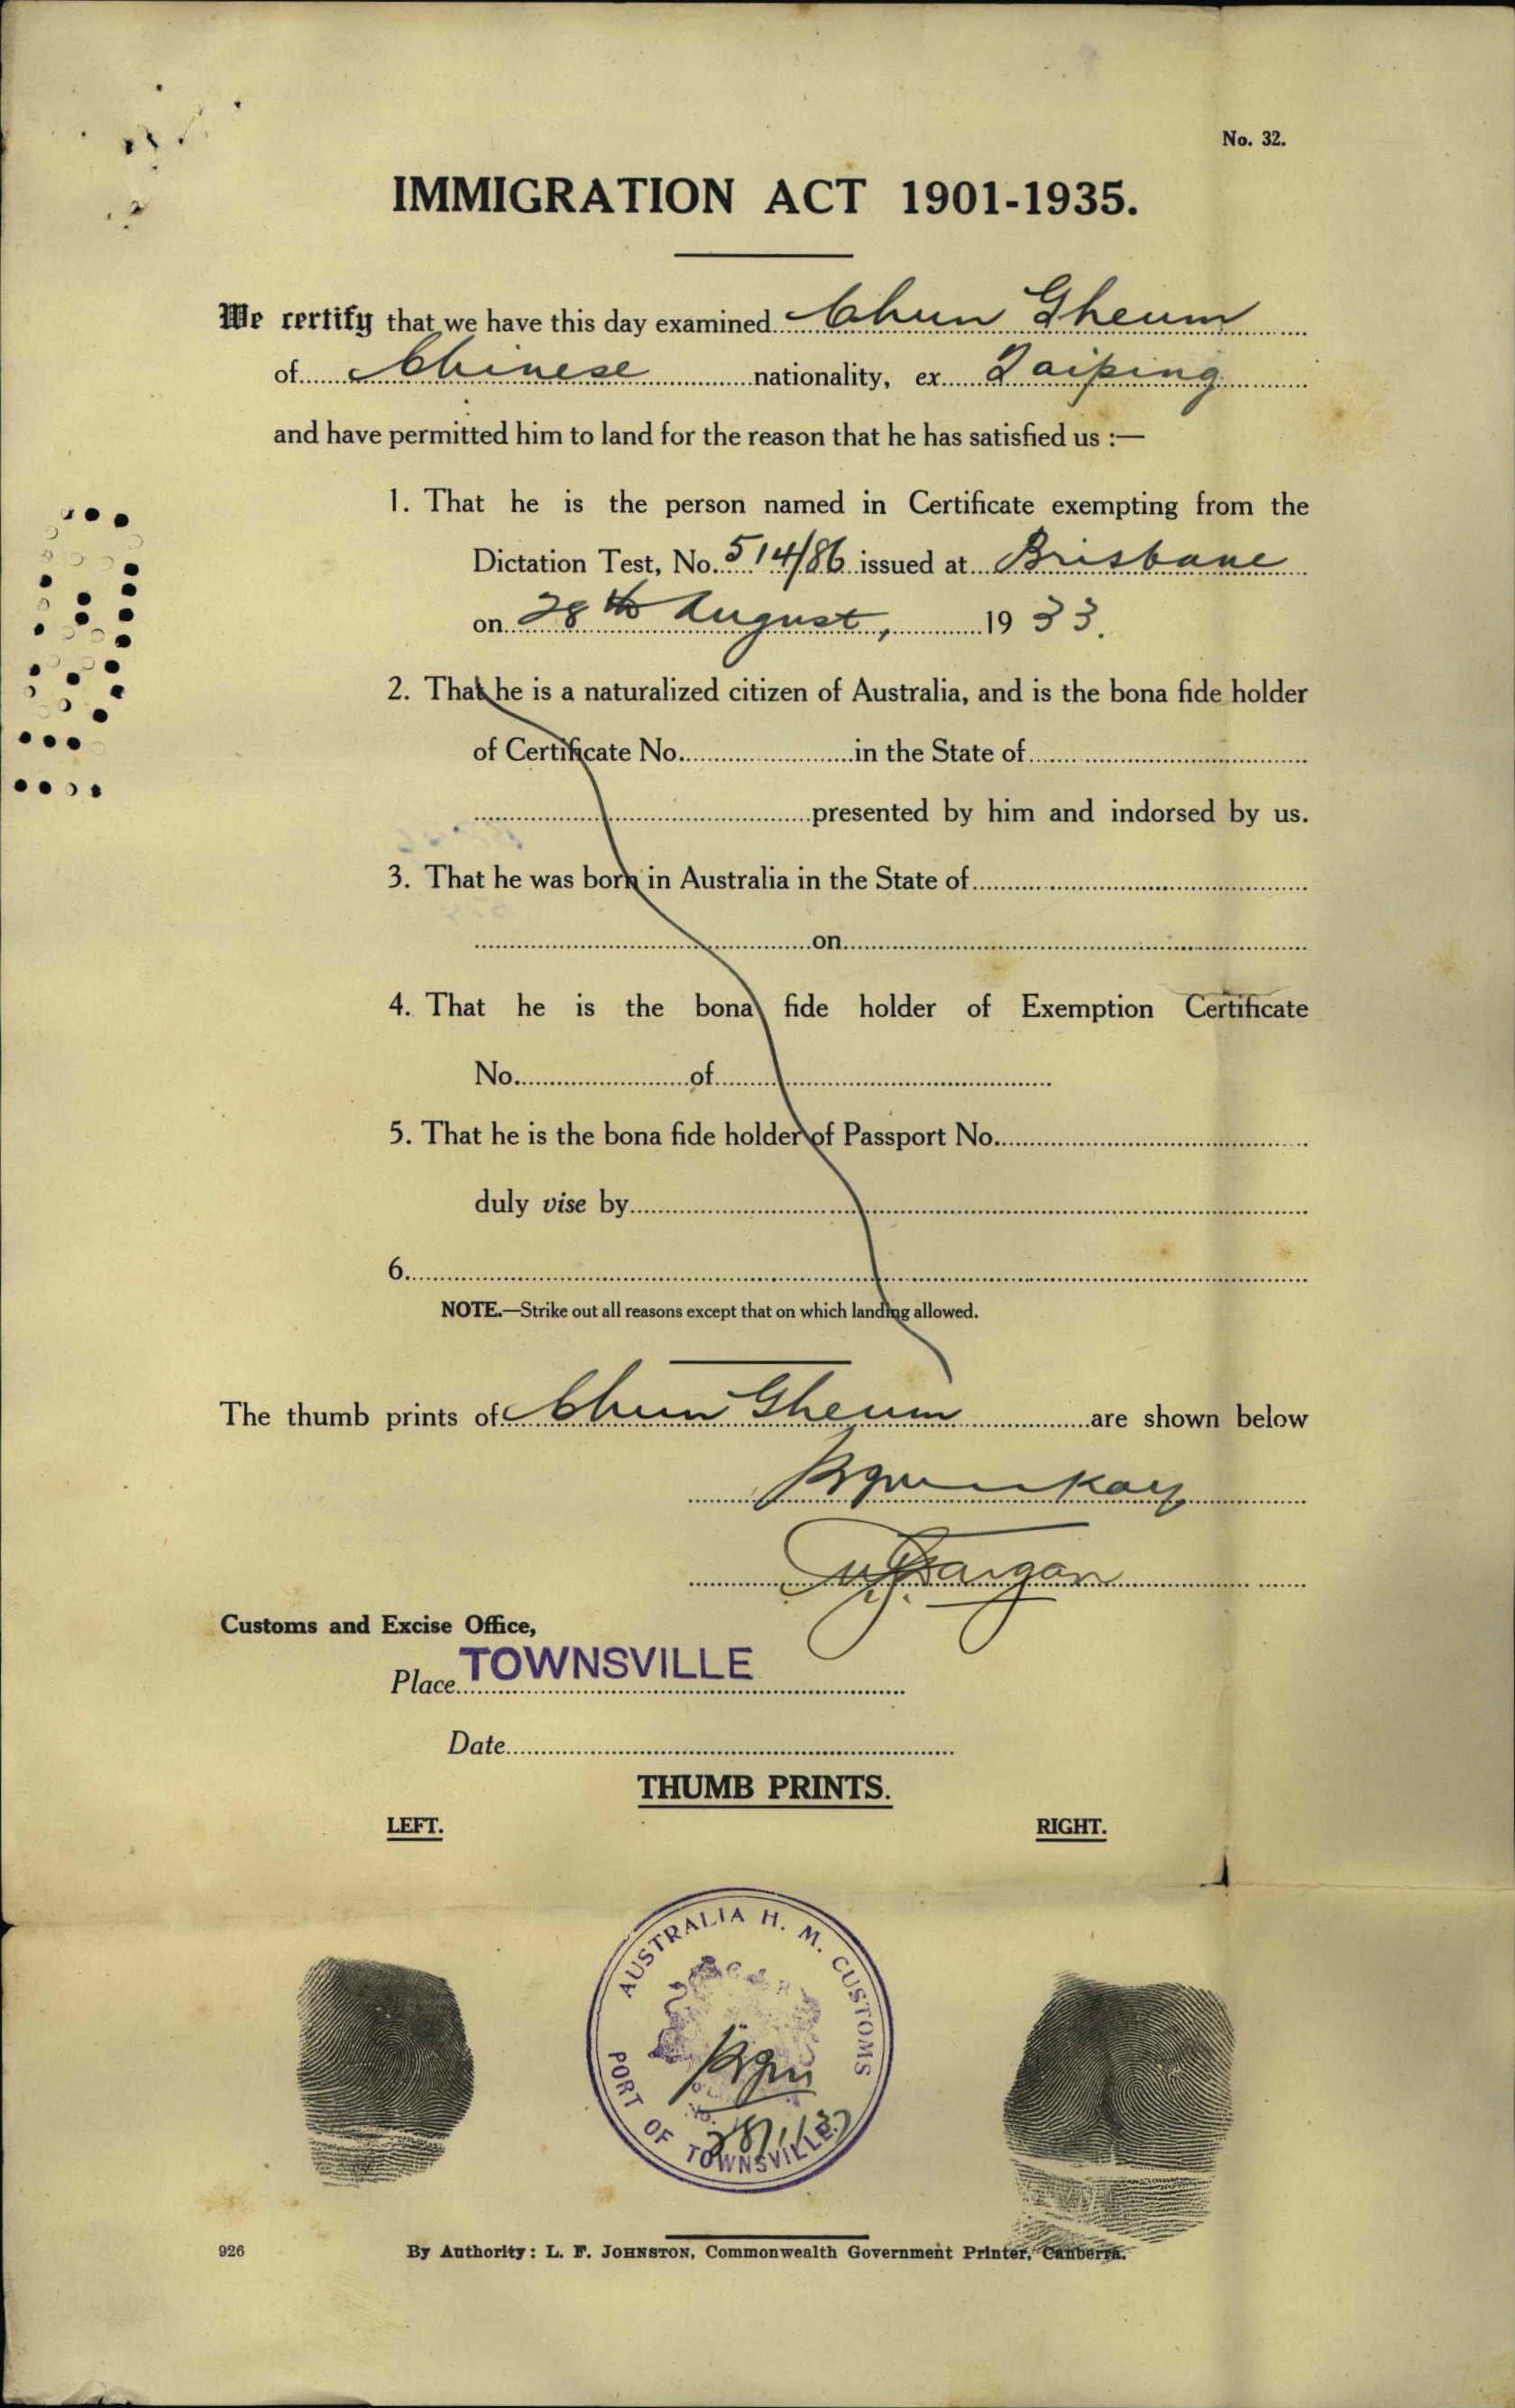 No. 32.
IMMIGRATION ACT 1901-1935.
We certify that we have this day examined Chun Gheum
of Chinese nationality, ex Taiping
and have permitted him to land for the reason that he has satisfied us :—
1. That he is the person named in Certificate exempting from the
Dictation Test, No. 514/86 issued at Brisbane
on 28th August, 1933.
2. That he is a naturalized citizen of Australia, and is the bona fide holder
of Certificate No. in the State of
presented by him and indorsed by us.
3. That he was born in Australia in the State of
on
4. That he is the bona fide holder of Exemption Certificate
No. of
5. That he is the bona fide holder of Passport No.
duly vise by
6.
NOTE.—Strike out all reasons except that on which landing allowed.
The thumb prints of Chun Gheum are shown below
Customs and Excise Office,
Place TOWNSVILLE
Date
THUMB PRINTS.
LEFT. RIGHT.
AUSTRALIA H. M. CUSTOMS
PORT OF TOWNSVILLE
926 By Authority: L. F. JOHNSTON, Commonwealth Government Printer, Canberra.